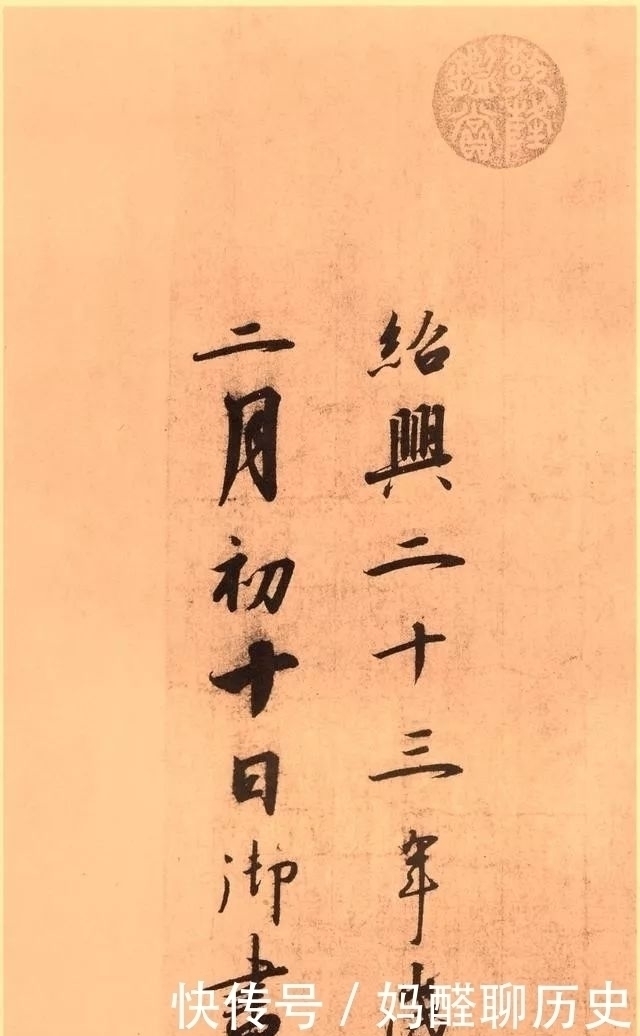 乾隆鑑賞
紹興二十三年
二月初十日御書
快传号 / 妈醛聊历史